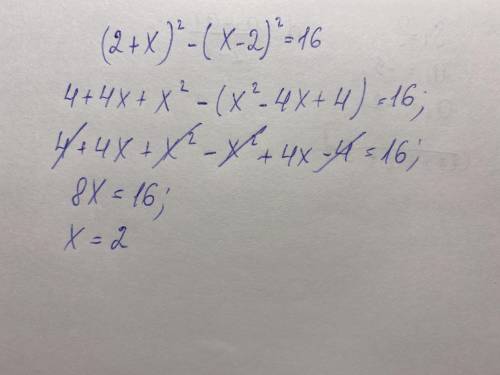 (2+x)²-(x-2)²=16
4+4x+x²-(x²-4x+4)=16;
4+4x+x²-x²+4x-4=16;
8x=16;
x=2